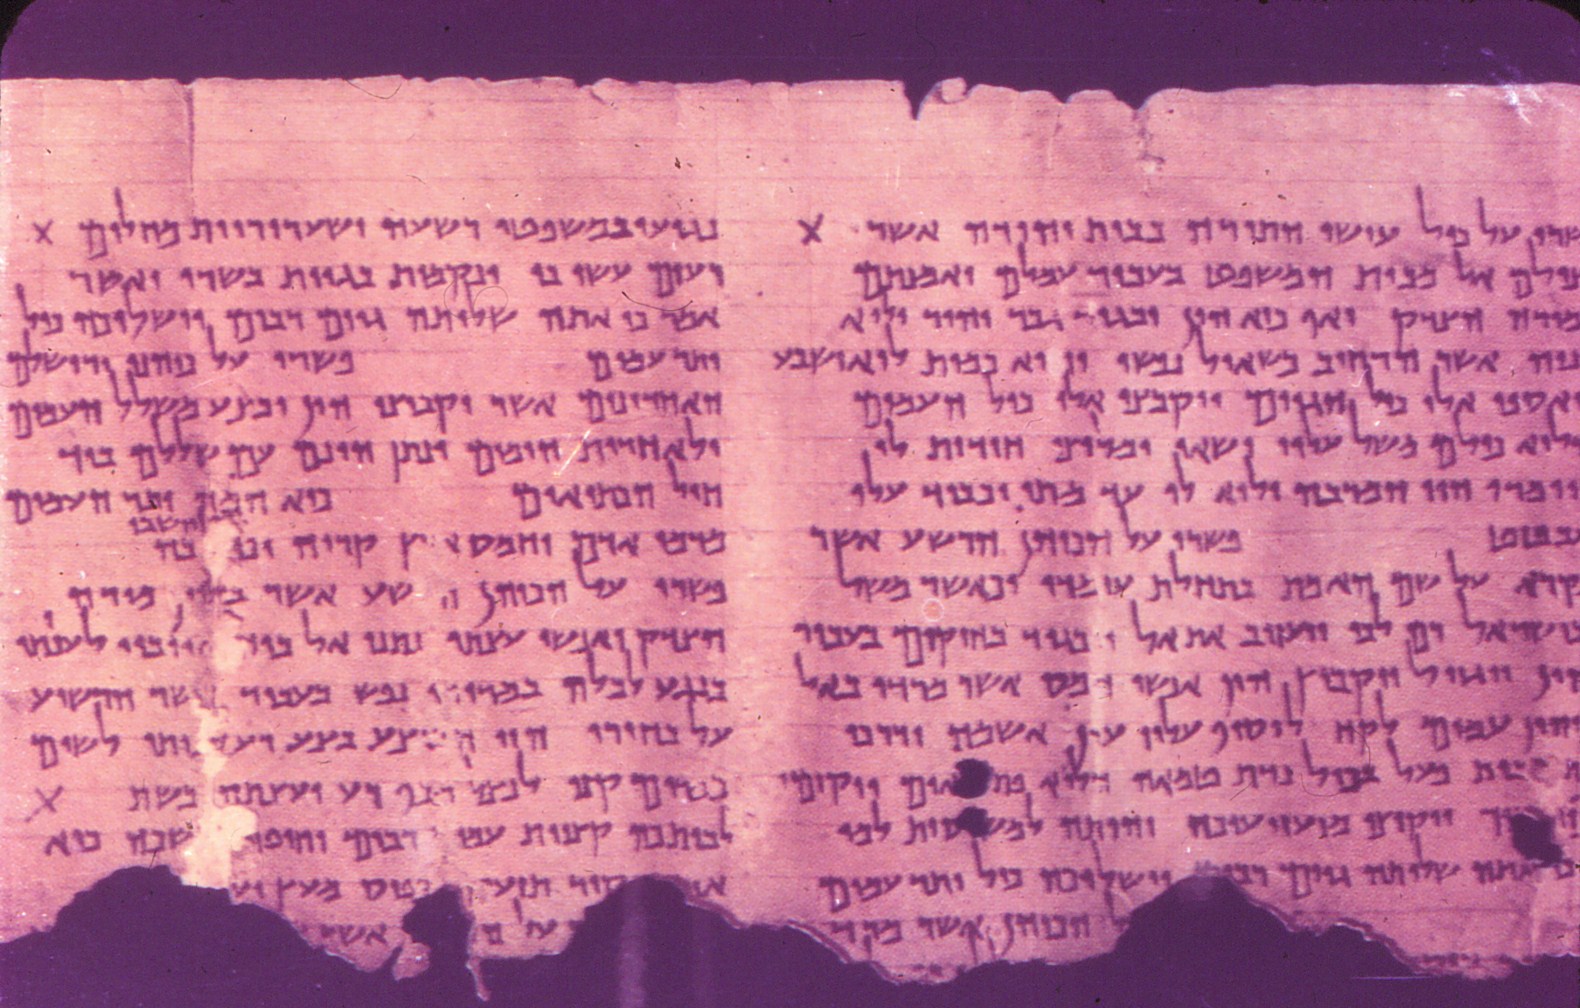 שרו על כול עושי התורה בבית יהודה אשר X
צילם אל מבית המשפט בעבור עמלם ואמנתם
מורה הצדק ואף כיא הון יבגוד גבר יהיר ולוא
נוה אשר הרחיב כשאול נפשו והוא כמות לוא ישבע
יאספו אלו כול הגוים ויקבצו אלו כול העמים
לוא כולם משל עליו ישאו ומליצי חידות לו
ויומרו הוי המרבה ולוא לו עד מתי יכביד עלו
עבטט פשרו על הכוהן הרשע אשר
קרא על שם האמת בתחלת עומדו וכאשר משל
בישראל רם לבו ויעזוב את אל ויבגוד בחוקים בעבור
הון ויגזול ויקבוץ הון אנשי חמס אשר מרדו באל
והון עמים לקח לוסיף עליו עון אשמה ודרכי
פעל בכול נדת טמאה הלוא ויקומו
ויקיצו מזעזיעיכה והייתה למו
אתה שלותה גוים רבים וישלוכה כול יתר עמים
הכוהן אשר מרד
נגועו במשפטי רשעה ושערוריות מחלים X
רעים עשו בו ונקמות בגוית בשרו ואשר
אמר כי אתה שלותה גוים רבים וישלוכה כול
יתר עמים פשרו על כוהני ירושלם
האחרונים אשר יקבוצו הון ובצע משלל העמים
ולאחרית הימים ינתן הונם עם שללם ביד
חיל הכתיאים כיא המה יתר העמים
יושבי
מדמי אדם וחמס ארץ קריה וכול בה
פשרו על הכוהן הרשע אשר מורה
הצדק ואנשי עצתו נתנו אל ביד אויביו לענותו
בנגע לכלה במרורי נפש בעבור אשר הרשיע
על בחירו הוי הבוצע בצע רע לביתו לשום
במרום קנו לנצל מכף רע יעצתה בשת X
לביתכה קצוות עמים רבים כיא
מקיר תזעק וכפיס מעץ
על אשר